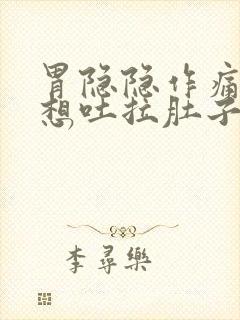 胃隐隐作痛
想,吐拉肚子
李尋樂